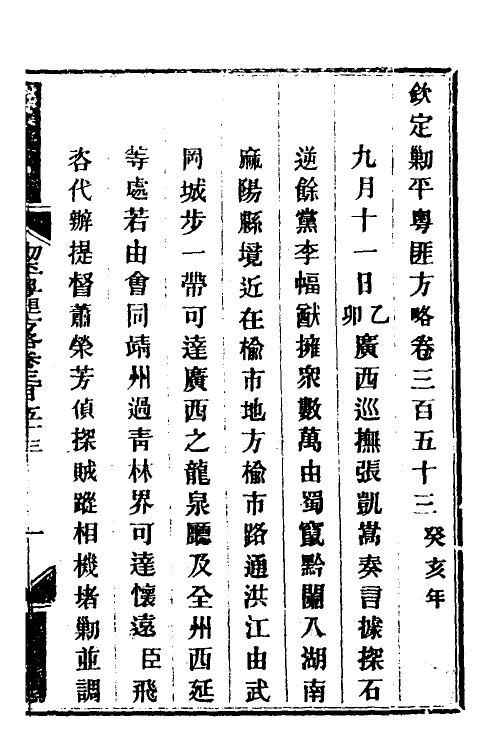 欽定勦平粵匪方略卷三百五十三癸亥年
九月十一日乙卯廣西巡撫張凱嵩奏言據探石
逆餘黨李幅猷擁衆數萬由蜀竄黔闌入湖南
麻陽縣境近在榆市地方榆市路通洪江由武
岡城步一帶可達廣西之龍泉廳及全州西延
等處若由會同靖州過青林界可達懷遠臣飛
咨代辦提督蕭榮芳偵探賊蹤相機堵勦並調